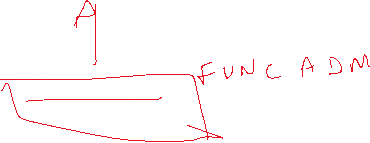 A
FUNC ADM